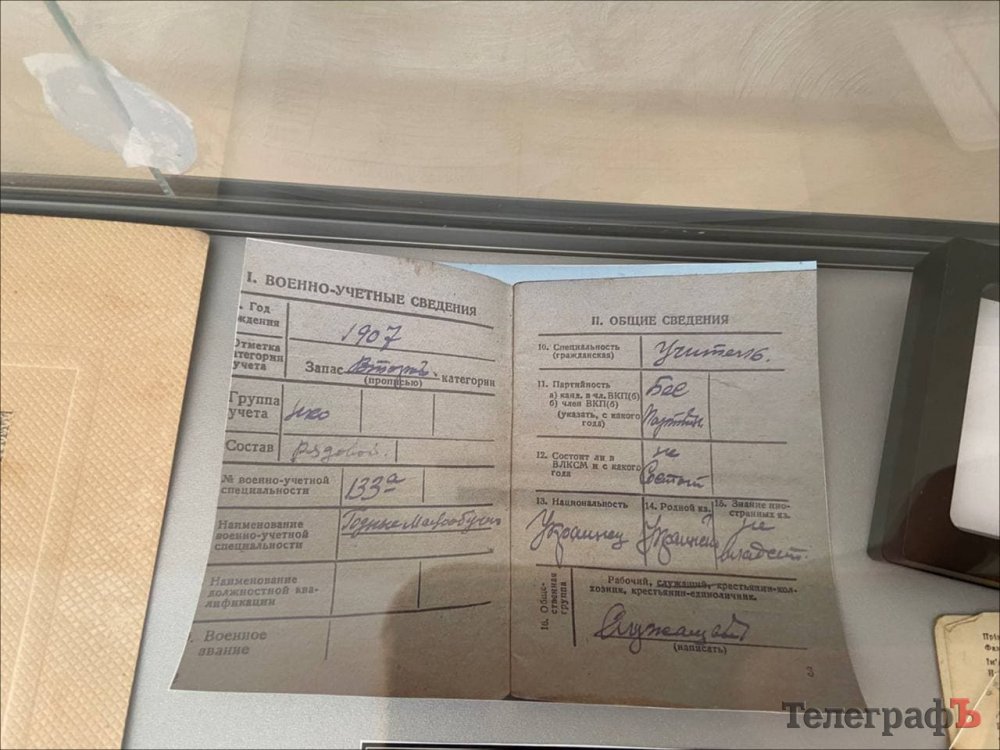 I. ВОЕННО-УЧЕТНЫЕ СВЕДЕНИЯ
Год
ждения
1907
Отметка
категории
учета
Запас Второй категории
(прописью)
Группа
учета
Состав
рядовой
№ военно-учетной
специальности
133а
Наименование
военно-учетной
специальности
Годные
Наименование
должностной ква-
лификации
Военное
звание
II. ОБЩИЕ СВЕДЕНИЯ
10. Специальность
(гражданская)
Учитель.
11. Партийность
а) канд. в чл. ВКП(б)
б) член ВКП(б)
(указать, с какого
года)
Бес
Партийн
12. Состоит ли в
ВЛКСМ и с какого
года
не
Состоит
13. Национальность
Украинец
14. Родной яз.
15. Знание ино-
странных яз.
не
владеет
16. Обще-
ственная
группа
Рабочий, служащий, крестьянин-кол-
хозник, крестьянин-единоличник.
Служащий
(написать)
3
ТелеграфЪ